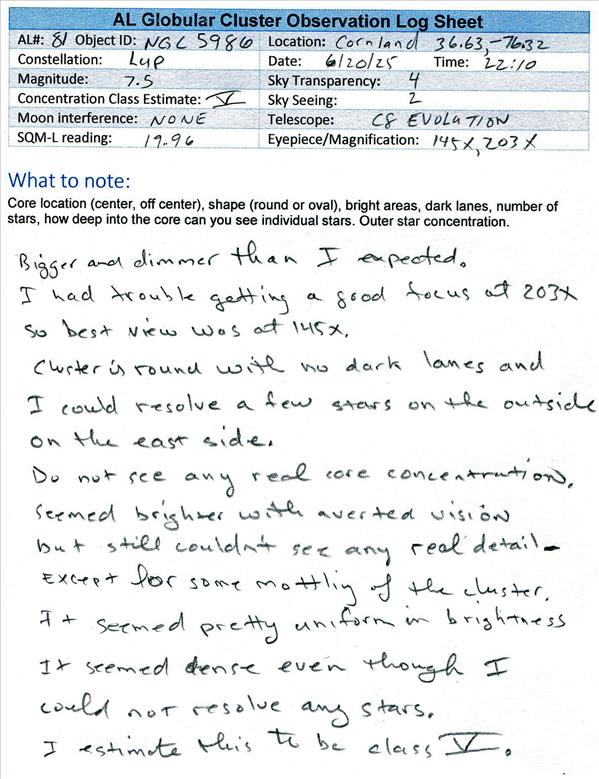 AL Globular Cluster Observation Log Sheet
AL#: 81 Object ID: NGC 5986 Location: Cornland 36.63, -76.32
Constellation: Lup Date: 6/20/25 Time: 22:10
Magnitude: 7.5 Sky Transparency: 4
Concentration Class Estimate: V Sky Seeing: 2
Moon interference: NONE Telescope: C8 EVOLUTION
SQM-L reading: 19.96 Eyepiece/Magnification: 145X, 203X
What to note:
Core location (center, off center), shape (round or oval), bright areas, dark lanes, number of
stars, how deep into the core can you see individual stars. Outer star concentration.
Bigger and dimmer than I expected.
I had trouble getting a good focus at 203X
so best view was at 145X.
Cluster is round with no dark lanes and
I could resolve a few stars on the outside
on the east side.
Do not see any real core concentration.
Seemed brighter with averted vision
but still couldn't see any real detail -
Except for some mottling of the cluster.
It seemed pretty uniform in brightness
It seemed dense even though I
could not resolve any stars.
I estimate this to be class V.